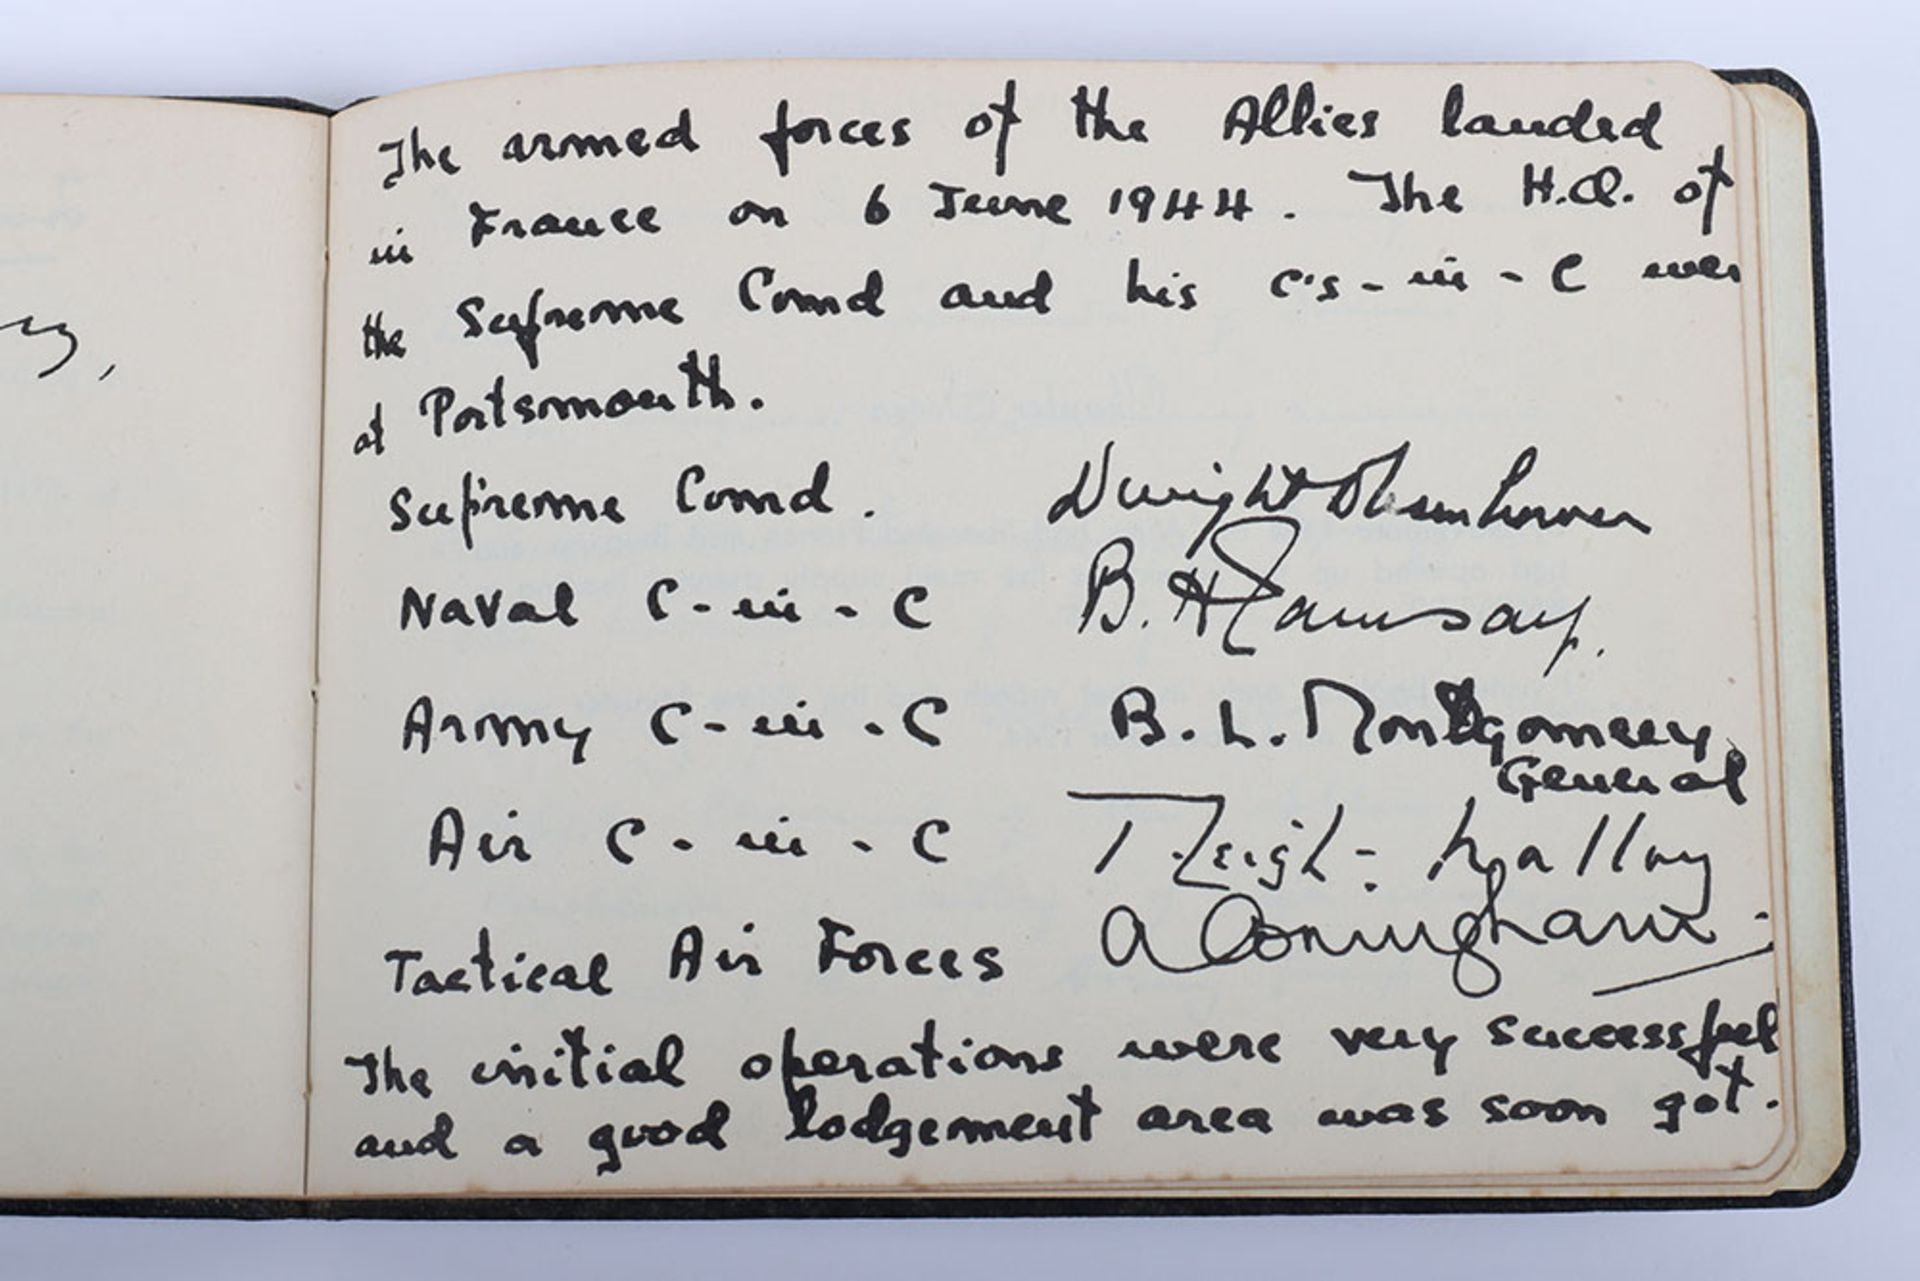 The armed forces of the Allies landed
in France on 6 June 1944. The H.Q. of
the Supreme Comd and his C's-in-C were
at Portsmouth.
Supreme Comd. Dwight D Eisenhower
Naval C-in-C B. H Ramsay.
Army C-in-C B. L. Montgomery
General
Air C-in-C T Leigh-Mallory
Tactical Air Forces A Coningham
The initial operations were very successful
and a good lodgement area was soon got.